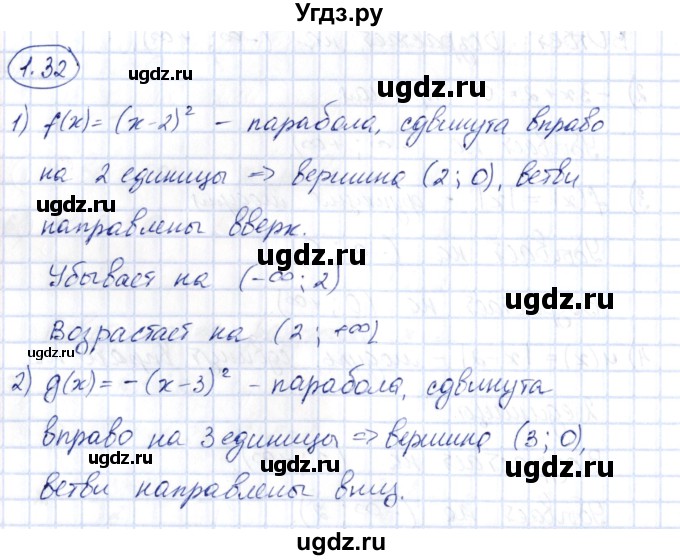 Угдз.ру
1.32
1) f(x) = (x-2)² – парабола, сдвинута вправо
на 2 единицы => вершина (2; 0), ветви
направлены вверх.
Убывает на (-∞; 2)
Возрастает на (2; +∞)
2) g(x) = -(x-3)² – парабола, сдвинута
вправо на 3 единицы => вершина (3; 0),
ветви направлены вниз.
ugdz.ru
ugdz.ru
ugdz.ru
ugdz.ru
ugdz.ru
ugdz.ru
ugdz.ru
ugdz.ru
ugdz.ru
ugdz.ru
ugdz.ru
ugdz.ru
ugdz.ru